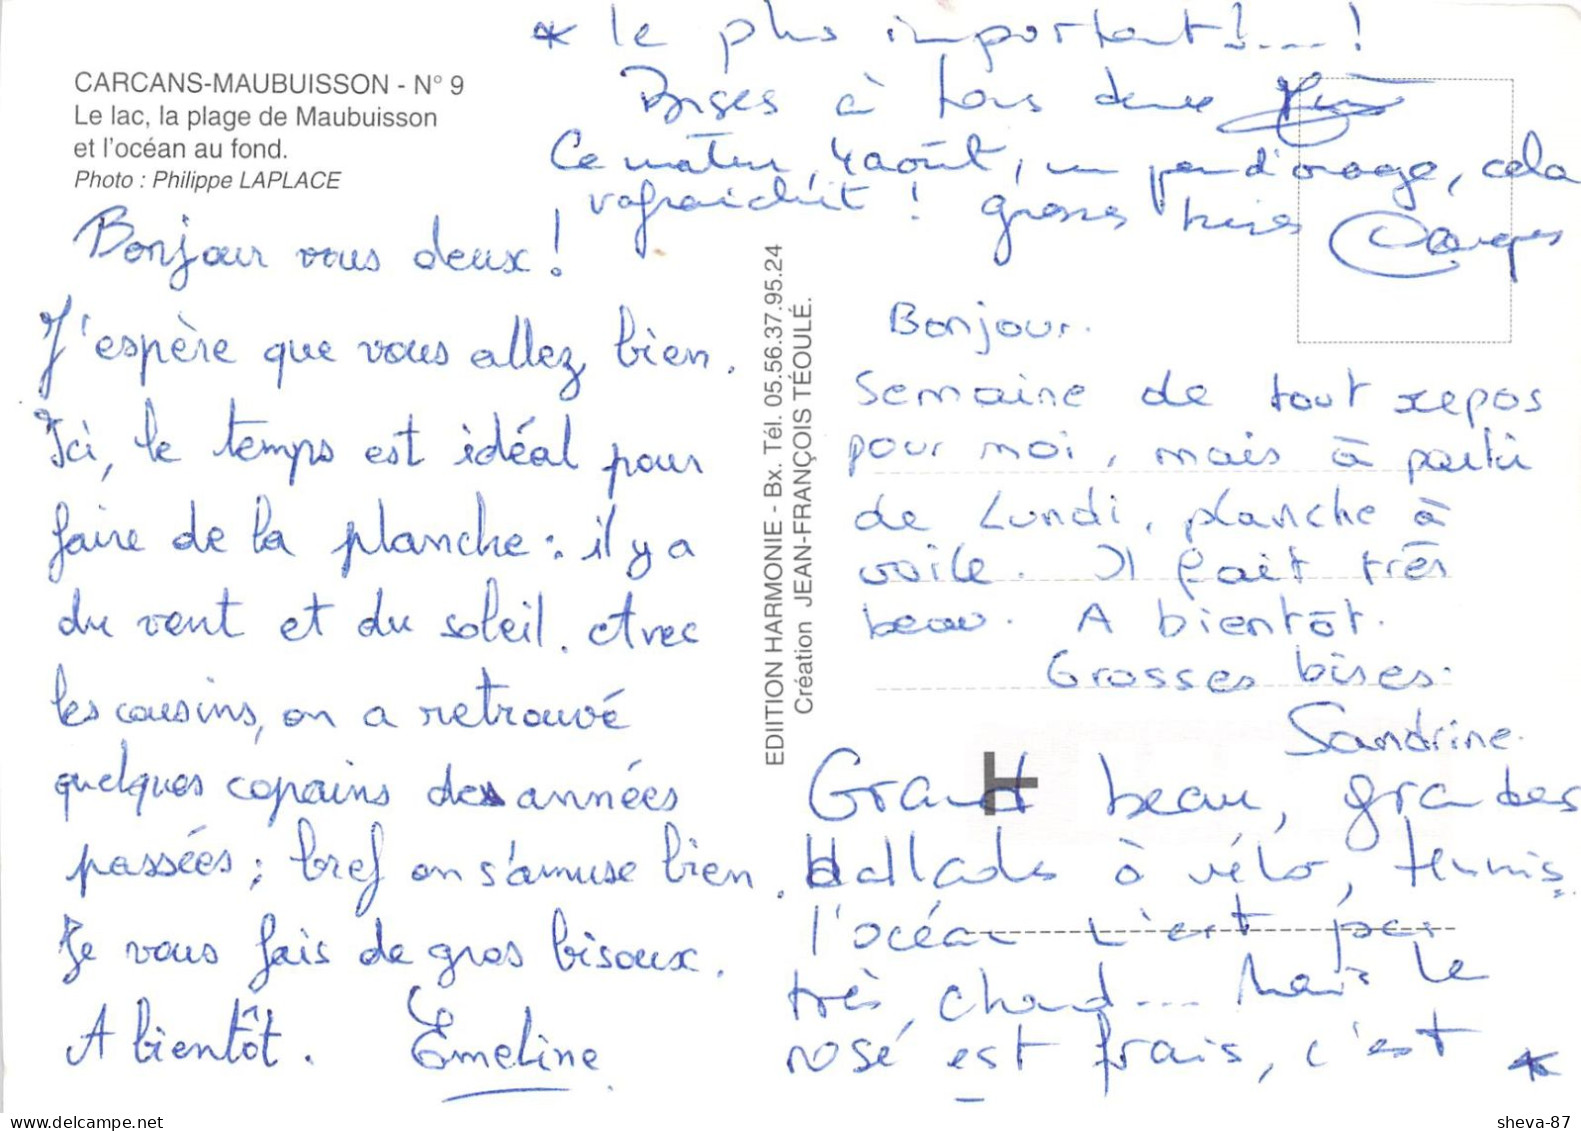 CARCANS-MAUBUISSON - N° 9
Le lac, la plage de Maubuisson
et l'océan au fond.
Photo : Philippe LAPLACE
Bonjour vous deux !
J'espère que vous allez bien.
Ici, le temps est idéal pour
faire de la planche : il y a
du vent et du soleil. Avec
les cousins, on a retrouvé
quelques copains des années
passées ; bref on s'amuse bien.
Je vous fais de gros bisoux.
A bientôt. Emeline
EDITION HARMONIE - Bx. Tél. 05.56.37.95.24
Création JEAN-FRANÇOIS TÉOULÉ.
Bonjour.
Semaine de tout repos
pour moi, mais à partir
de Lundi, planche à
voile. Il fait très
beau. A bientôt.
Grosses bises.
Sandrine.
Grand beau, grandes
ballades à vélo, tennis.
l'océan n'est pas
très chaud.... Mais le
rosé est frais, c'est *
* le plus important !.... !
Bises à tous deux
Ce matin, 4 août, un peu d'orage, cela
rafraichit ! grosses bises
sheva-87